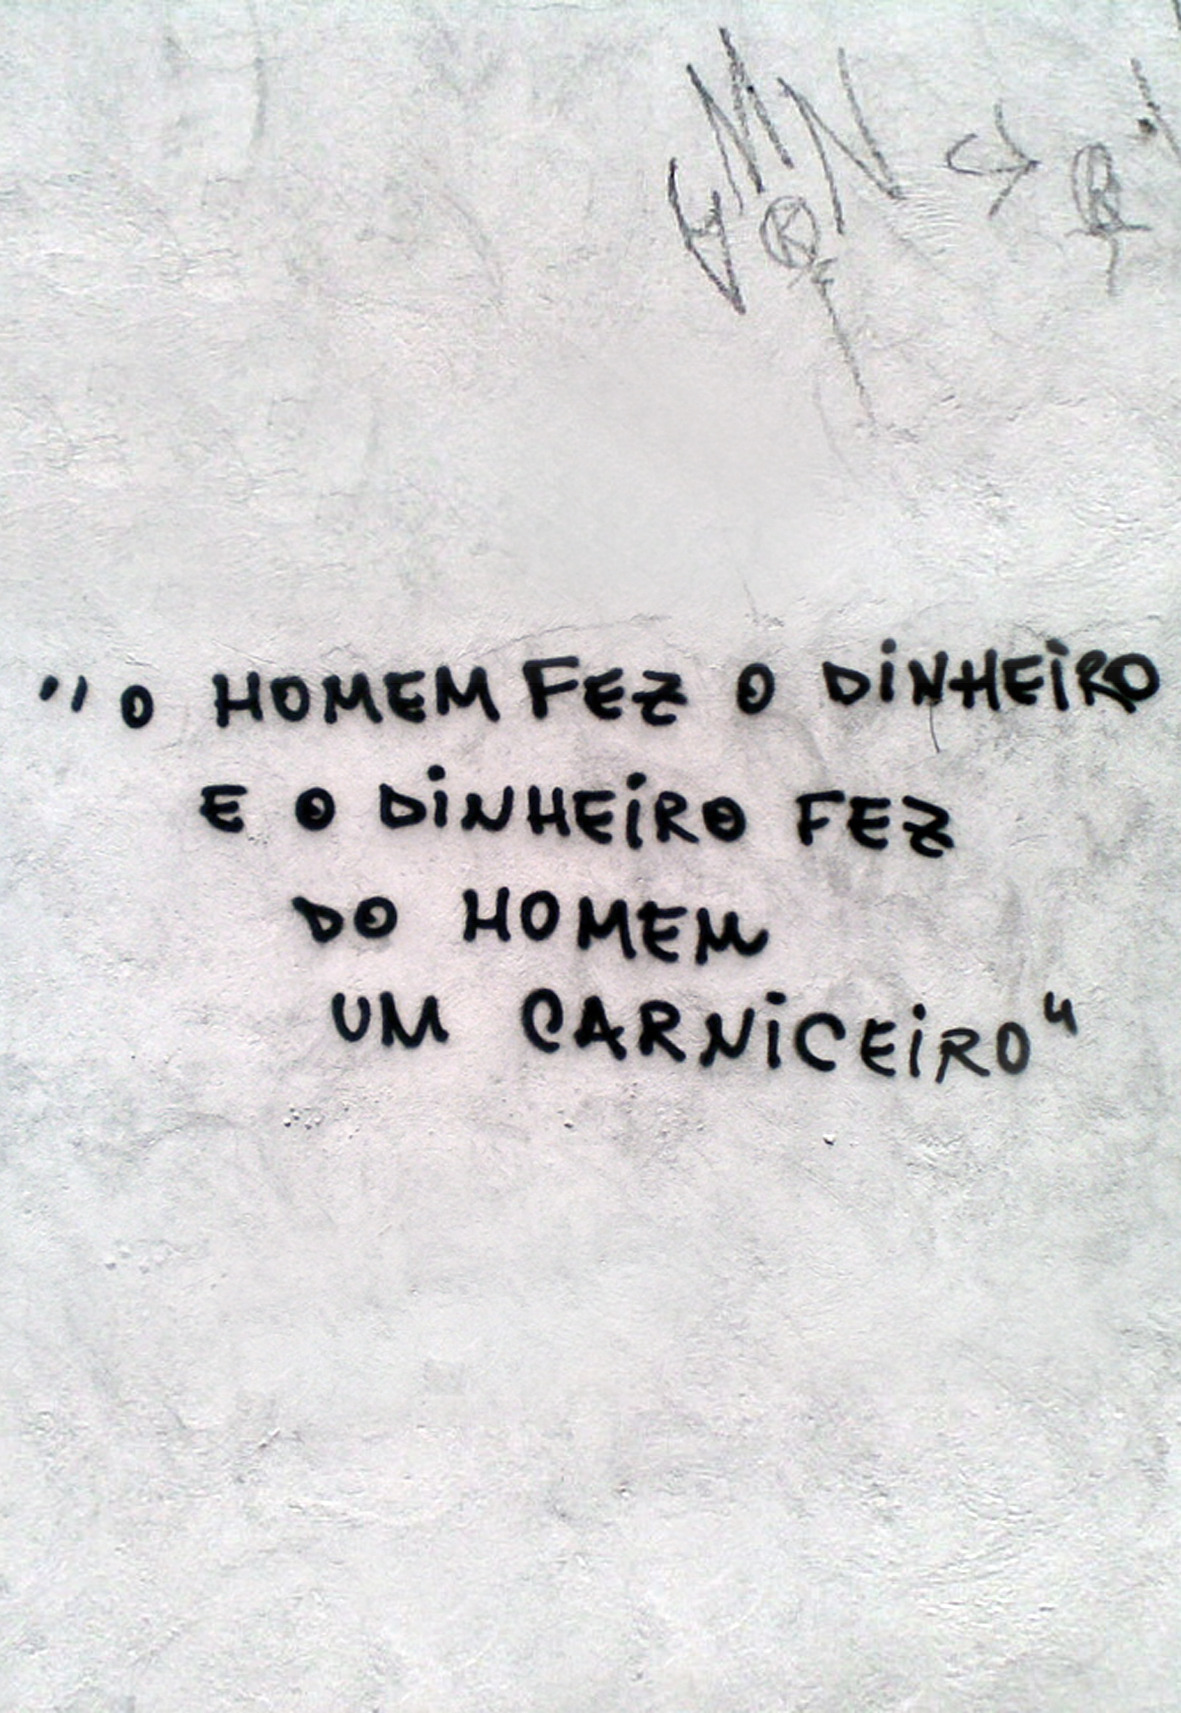 "O HOMEM FEZ O DINHEIRO
E O DINHEIRO FEZ
DO HOMEM
UM CARNICEIRO"